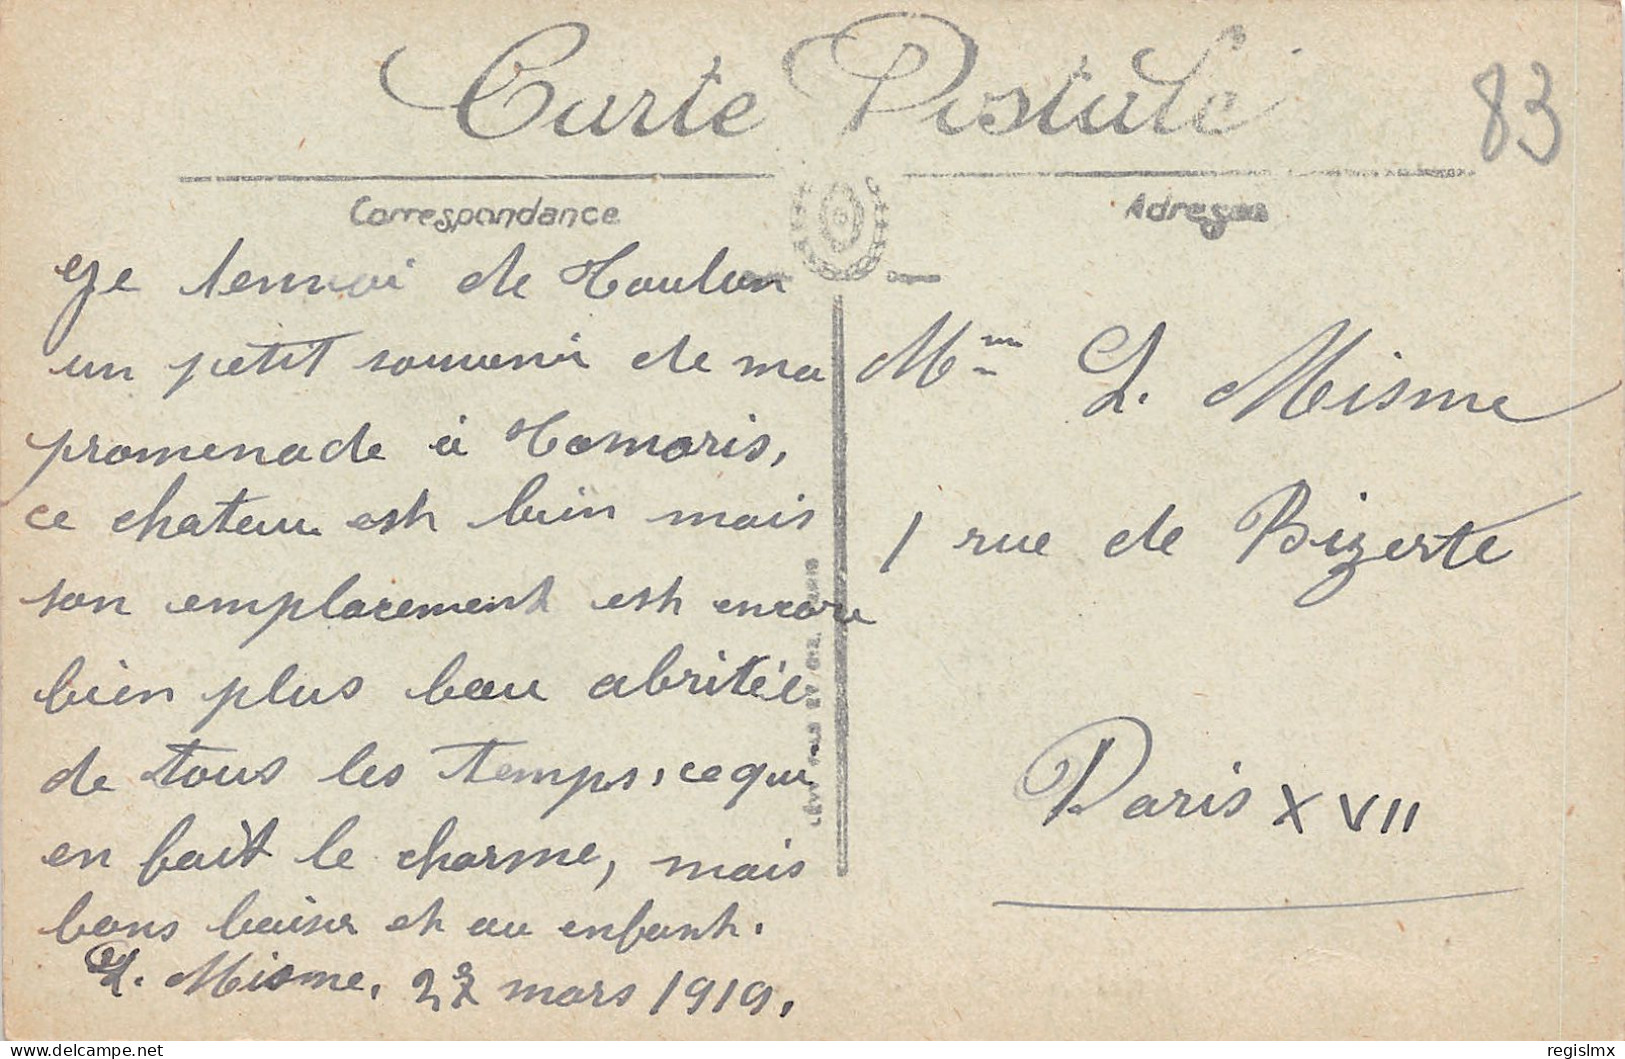 Carte Postale
83
Correspondance
Adresse
Je tenvoi de Toulon
un petit souvenir de ma
promenade à Tamaris,
ce chateau est bien mais
son emplacement est encore
bien plus beau abritée
de tous les temps, ce qui
en fait le charme, mais
bons baiser et au enfant.
L. Misme, 27 mars 1919.
Mme L. Misme
1 rue de Bizerte
Paris XVII
LÉVY FILS ET CIE. PARIS
regislmx